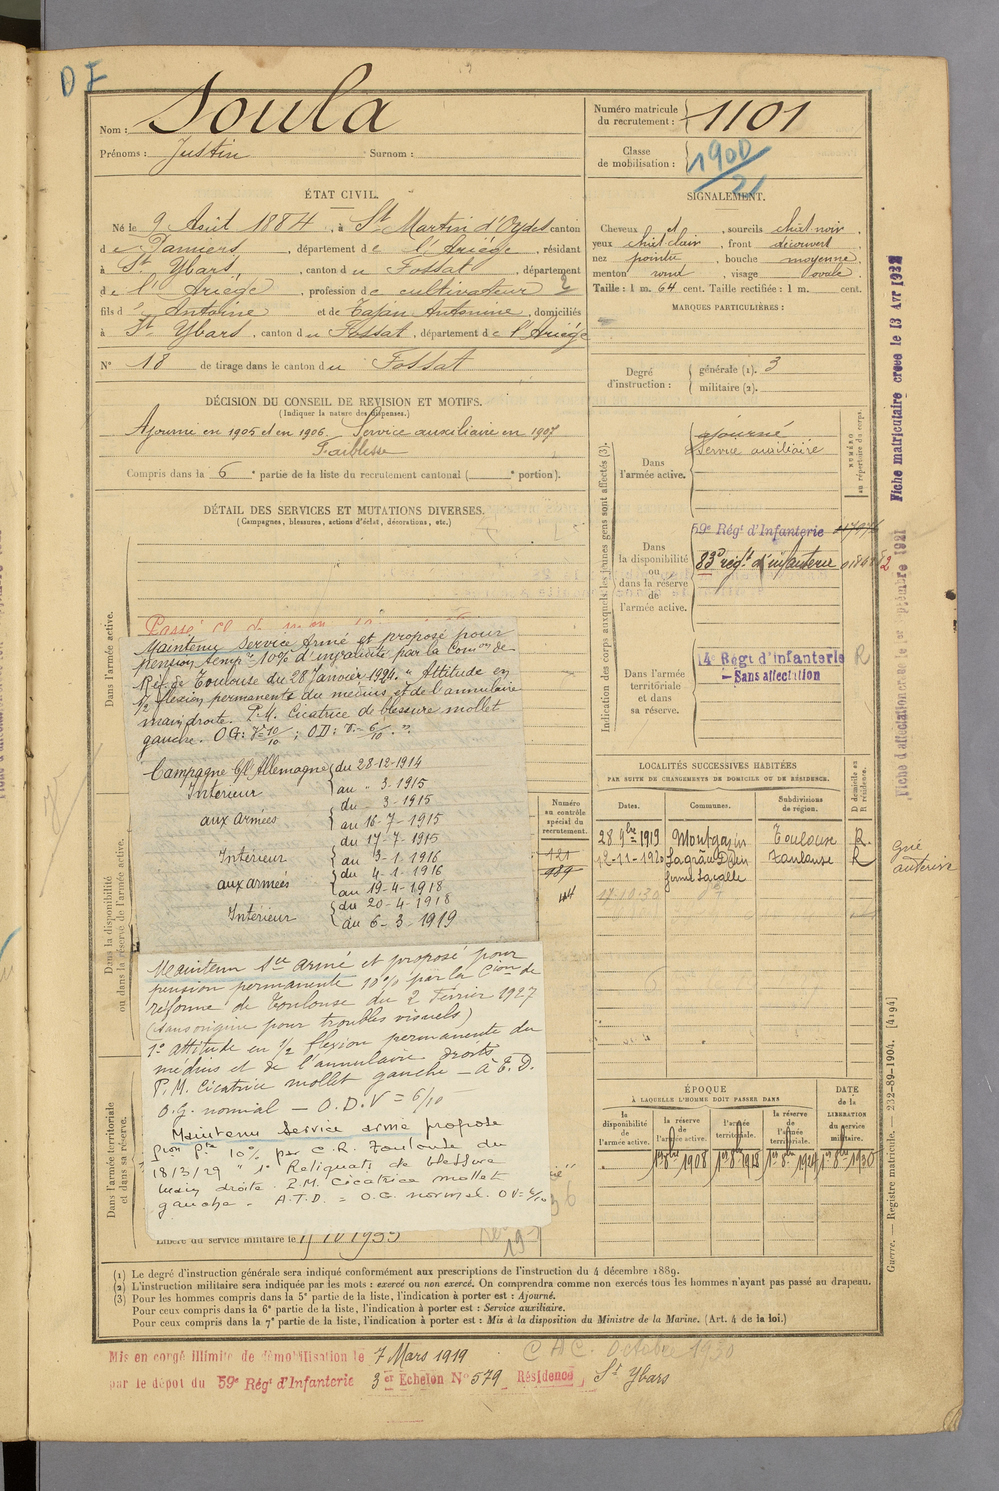 DF
Nom : Soula
Prénoms : Justin Surnom :
Numéro matricule
du recrutement : 1101
Classe
de mobilisation : 1900/21
ÉTAT CIVIL.
Né le 9 Août 1884, à St Martin d'Oydes canton
de Pamiers, département de l'Ariège, résidant
à St Ybars, canton du Fossat, département
de l'Ariège, profession de cultivateur
fils d'Antoine et de Tajan Antonine, domiciliés
à St Ybars, canton du Fossat, département de l'Ariège
N° 18 de tirage dans le canton du Fossat
SIGNALEMENT.
Cheveux et, sourcils chât noir,
yeux chât clair, front découvert
nez pointu, bouche moyenne,
menton rond, visage ovale.
Taille : 1 m. 64 cent. Taille rectifiée : 1 m. cent.
MARQUES PARTICULIÈRES :
Degré
d'instruction :
générale (1). 3
militaire (2).
DÉCISION DU CONSEIL DE REVISION ET MOTIFS.
(Indiquer la nature des dispenses.)
Ajourné en 1905 et en 1906. Service auxiliaire en 1907
Faiblesse
Compris dans la 6e partie de la liste du recrutement cantonal ( e portion).
DÉTAIL DES SERVICES ET MUTATIONS DIVERSES.
(Campagnes, blessures, actions d'éclat, décorations, etc.)
Dans l'armée active.
Dans la disponibilité
ou dans la réserve de l'armée active.
Dans l'armée territoriale
et dans sa réserve.
Passé
Maintenu Service Armé et proposé pour
pension temp re 10% d'invalidité par la Comon de
Réf. de Toulouse du 28 Janvier 1924. " Attitude en
1/2 flexion permanente du médius et de l'annulaire
main droite. P.M. Cicatrice de blessure mollet
gauche. OG: V=10/10 ; OD: V= 6/10. "
Campagne c/ l'Allemagne du 28-12-1914
Intérieur au " 3-1915
aux armées du - 3-1915
au 16-7-1915
Intérieur du 17-7-1915
au 3-1-1916
aux armées du 4-1-1916
au 19-4-1918
Intérieur du 20-4-1918
au 6-3-1919
Maintenu Sce armé et proposé pour
pension permanente 10% par la Cion de
réforme de Toulouse du 2 Février 1927
(sans origine pour troubles visuels)
1° attitude en 1/2 flexion permanente du
médius et de l'annulaire droits
P.M. cicatrice mollet gauche — A.T.D.
O.G. normal — O.D.V = 6/10
Maintenu Service armé proposé
pion pte 10% par C.R. Toulouse du
18/3/29 " 1° Reliquats de blessure
main droite. P.M. Cicatrice mollet
gauche - A.T.D. = O.G. normal. OV=6/10
Libéré du service militaire le
Numéro
au contrôle
spécial du
recrutement.
121
989
44
Indication des corps auxquels les jeunes gens sont affectés (3).
NUMÉRO
au répertoire du corps.
Dans
l'armée active.
ajourné
Service auxiliaire
Dans
la disponibilité
ou
dans la réserve
de
l'armée active.
59e Régt d'Infanterie
83e régt d'infanterie
Dans l'armée
territoriale
et dans
sa réserve.
14e Régt d'Infanterie
— Sans affectation
R
LOCALITÉS SUCCESSIVES HABITÉES
PAR SUITE DE CHANGEMENTS DE DOMICILE OU DE RÉSIDENCE.
D domicile ou
R résidence.
Dates.
Communes.
Subdivisions
de région.
28 9bre 1919 Montgazin Toulouse R.
12-11-1920 Lagrâce Dieu Toulouse R
ferme Lacalle
17-10-30
ÉPOQUE
À LAQUELLE L'HOMME DOIT PASSER DANS
la
disponibilité
de
l'armée active.
la réserve
de
l'armée active.
l'armée
territoriale.
la réserve
de
l'armée
territoriale.
DATE
de la
LIBÉRATION
du service
militaire.
Fiche matriculaire créée le 13 Avr 1932
Guerre. — Registre matricule. — 232-89-1904. [4194]
(1) Le degré d'instruction générale sera indiqué conformément aux prescriptions de l'instruction du 4 décembre 1889.
(2) L'instruction militaire sera indiquée par les mots : exercé ou non exercé. On comprendra comme non exercés tous les hommes n'ayant pas passé au drapeau.
(3) Pour les hommes compris dans la 5e partie de la liste, l'indication à porter est : Ajourné.
Pour ceux compris dans la 6e partie de la liste, l'indication à porter est : Service auxiliaire.
Pour ceux compris dans la 7e partie de la liste, l'indication à porter est : Mis à la disposition du Ministre de la Marine. (Art. 4 de la loi.)
Mis en congé illimité de démobilisation le 7 Mars 1919
par le dépôt du 59e Régt d'Infanterie 3er Echelon N° 579 Résidence St Ybars
CAC. Octobre 1930